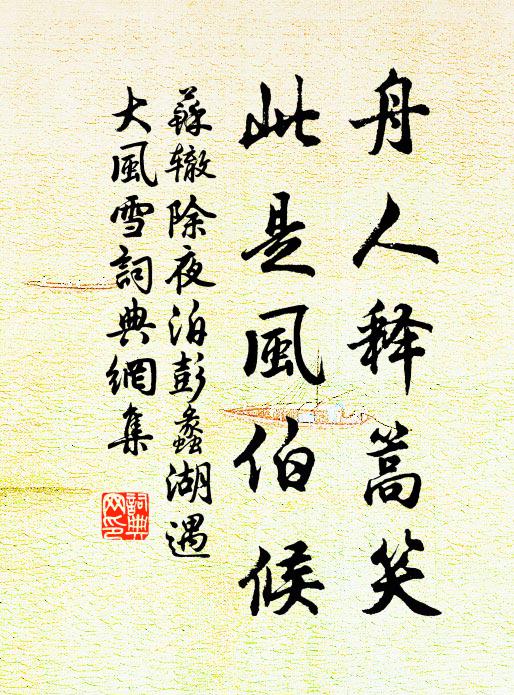 舟人释篙笑
此是風伯候
蘇辙除夜泊彭蠡湖遇
大風雪詞典網集
詞典
网印